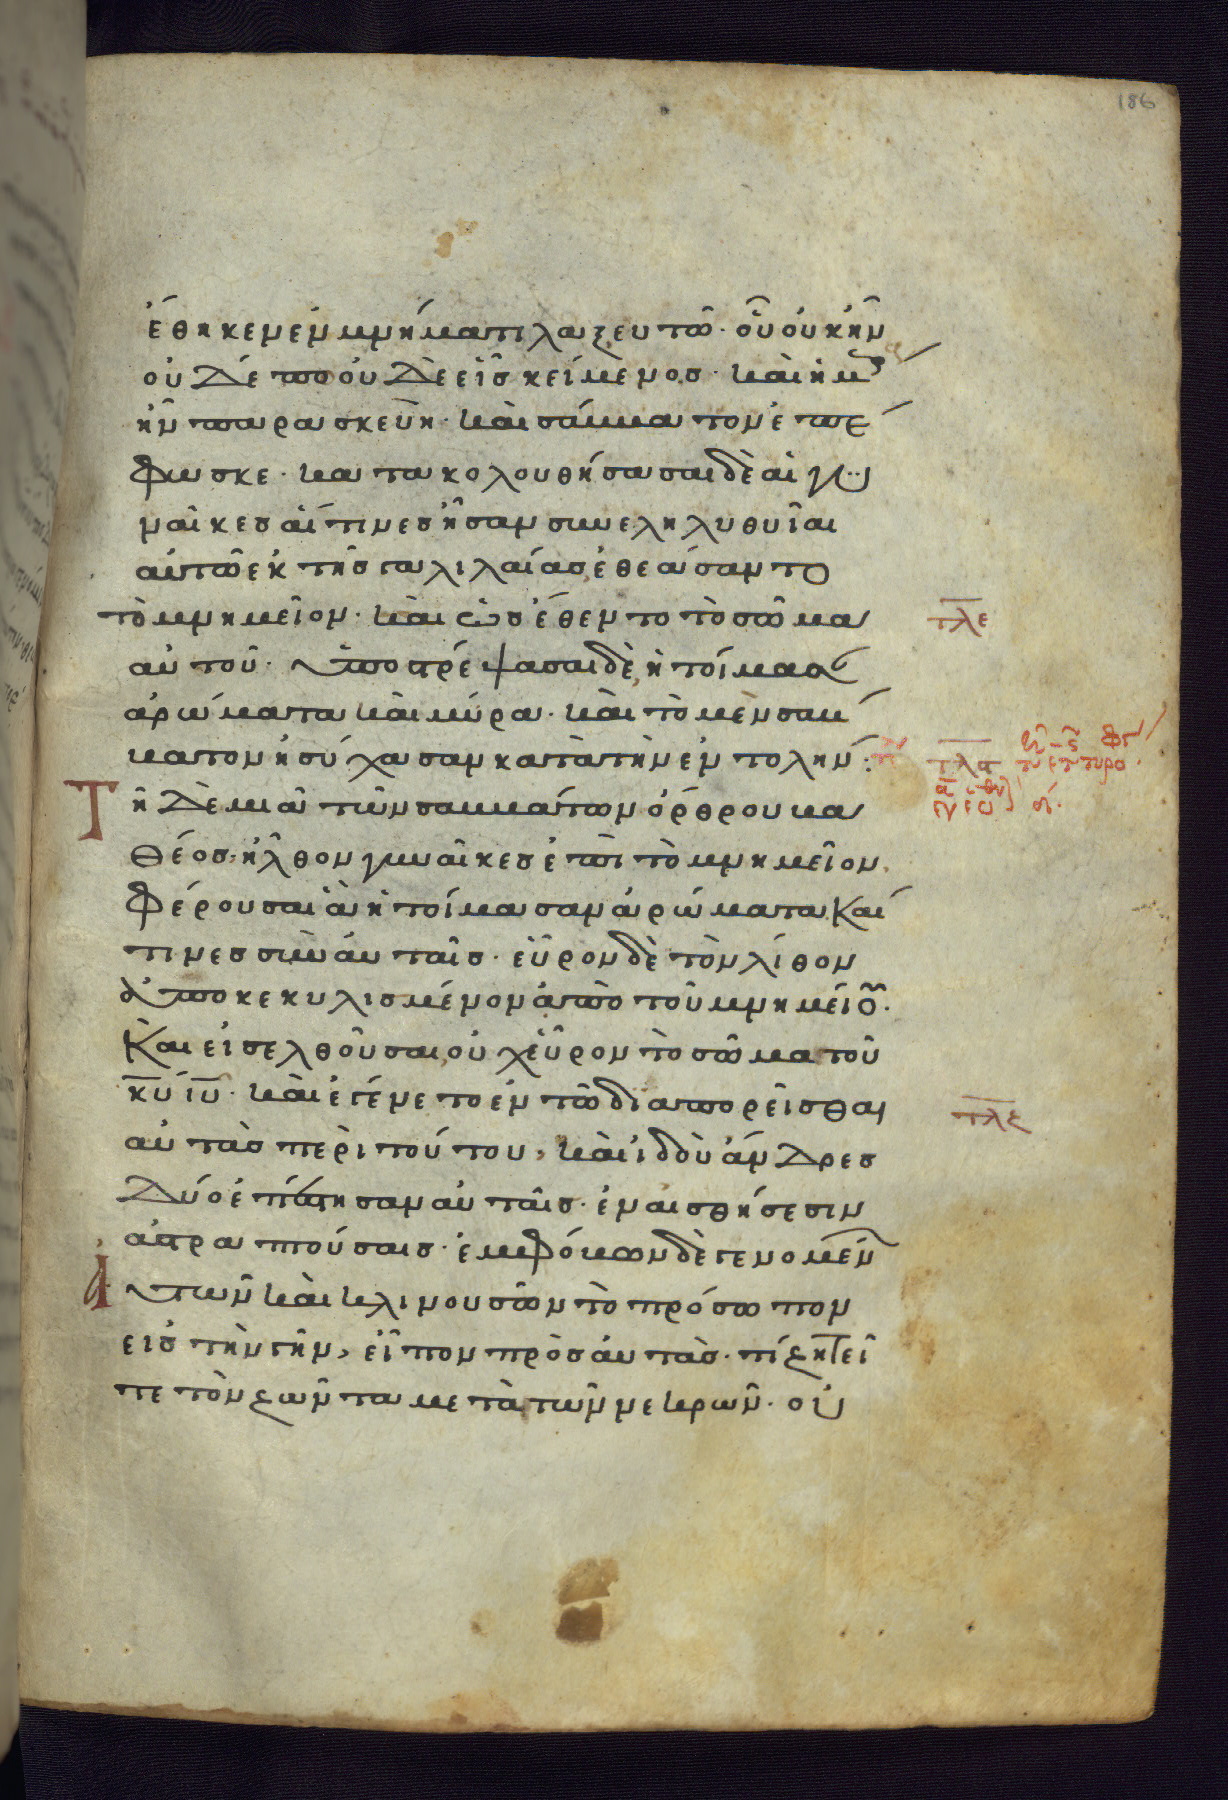 186
ἔθηκεν ἐν μνήματι λαξευτῶ· οὗ οὐκ ἦν
οὐδέπω οὐδεὶς κείμενος· καὶ ἡμ
ἦν παρασκευὴ· καὶ σάββατον ἐπέ
φωσκε· κατακολουθήσασαι δὲ αἱ γυ
ναῖκες αἵτινες ἦσαν συνεληλυθυῖαι
αὐτῶ ἐκ τῆς γαλιλαίας ἐθεάσαντο
τὸ μνημεῖον· καὶ ὡς ἐθεν το τὸ σῶμα
αὐτοῦ· ὑποστρέψασαι δὲ ἡτοίμασ
ἀρώματα καὶ μύρα· καὶ τὸ μὲν σάβ
βατον ἡσύχασαν κατὰ τὴν ἐντολήν:
Τῆ δὲ μιᾶ τῶν σαββάτων ὄρθρου βα
θέος· ἦλθον γυναῖκες ἐπὶ τὸ μνημεῖον
φέρουσαι ἃ ἡτοίμασαν ἀρώματα καί
τινες σὺν αὐταῖς· εὗρον δὲ τὸν λίθον
ἀποκεκυλισμένον ἀπὸ τοῦ μνημείου·
Καὶ εἰσελθοῦσαι οὐχ εὗρον τὸ σῶμα τοῦ
κυ ιυ· καὶ ἐγένετο ἐν τῶ διαπορεῖσθαι
αὐτὰς περὶ τούτου, καὶ ἰδοὺ ἄνδρες
δύο ἐπέστησαν αὐταῖς· ἐν αἰσθήσεσιν
ἀστραπτούσαις· ἐμφόβων δὲ γενομέν
αὐτῶν καὶ κλινουσῶν τὸ πρόσωπον
εἰς τὴν γῆν, εἶπον πρὸς αὐτὰς· τί ζητεῖ
τε τὸν ζῶντα μετὰ τῶν νεκρῶν· οὐ
τλε
τλς